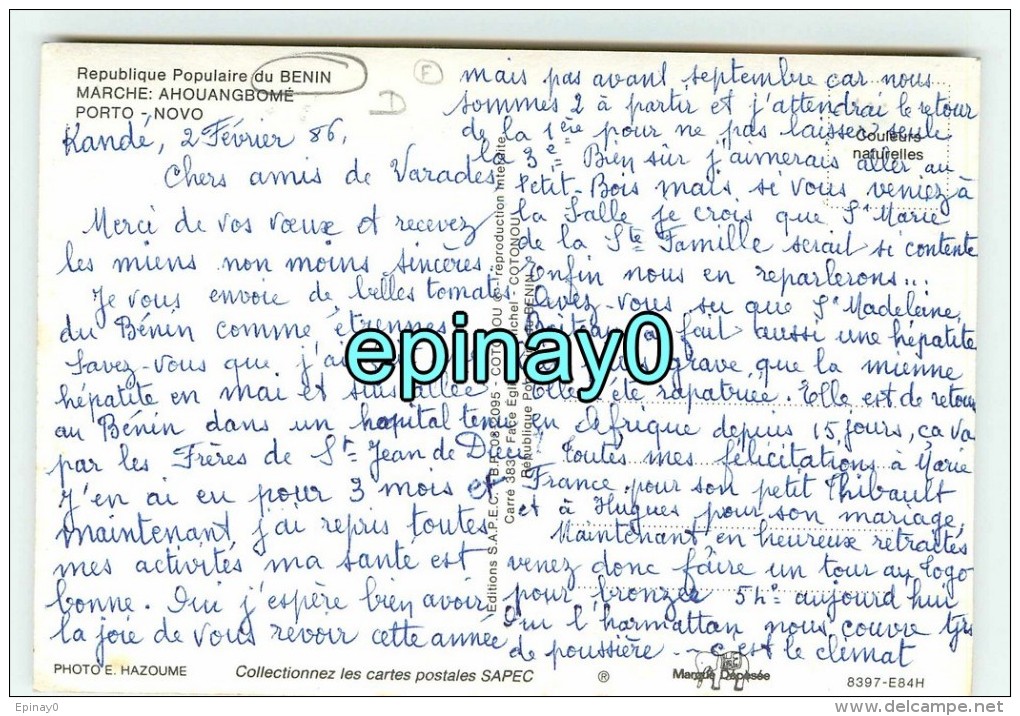 Republique Populaire du BENIN
MARCHE: AHOUANGBOMÉ
PORTO - NOVO
F
D
Couleurs
naturelles
Kandé, 2 Février 86,
Chers amis de Varades
Merci de vos vœux et recevez
les miens non moins sincères.
Je vous envoie de belles tomates
du Bénin comme étrennes
Savez-vous que j'ai
hépatite en mai et suis allée
au Bénin dans un hopital tenu
par les Frères de St Jean de Dieu
J'en ai eu pour 3 mois et
maintenant j'ai repris toutes
mes activités ma santé est
bonne. Oui j'espère bien avoir
la joie de vous revoir cette année
mais pas avant septembre car nous
sommes 2 à partir et j'attendrai le retour
de la 1ère pour ne pas laisser seule
la 3e. Bien sûr j'aimerais aller au
Petit-Bois mais si vous veniez à
la Salle je crois que Sr Marie
de la Ste Famille serait si contente
Enfin nous en reparlerons...
Avez-vous su que Sr Madeleine
Boiteau a fait aussi une hépatite
grave, que la mienne
Elle a été rapatriée. Elle est de retour
en Afrique depuis 15 jours, ça va
Toutes mes félicitations à Marie
France pour son petit Thibault
et à Hugues pour son mariage,
Maintenant en heureux retraités
venez donc faire un tour au Togo
pour bronzer 5h aujourd'hui
Oui l'harmattan nous couvre tjrs
de poussière - c'est le climat
Editions S.A.P.E.C. - B.P. 08-2095 - COTONOU © - reproduction interdite
Carré 383 Face Eglise St Michel - COTONOU
République Populaire du BENIN
epinay0
PHOTO E. HAZOUME
Collectionnez les cartes postales SAPEC
®
Marque Déposée
8397-E84H
Epinay0
www.delcampe.net